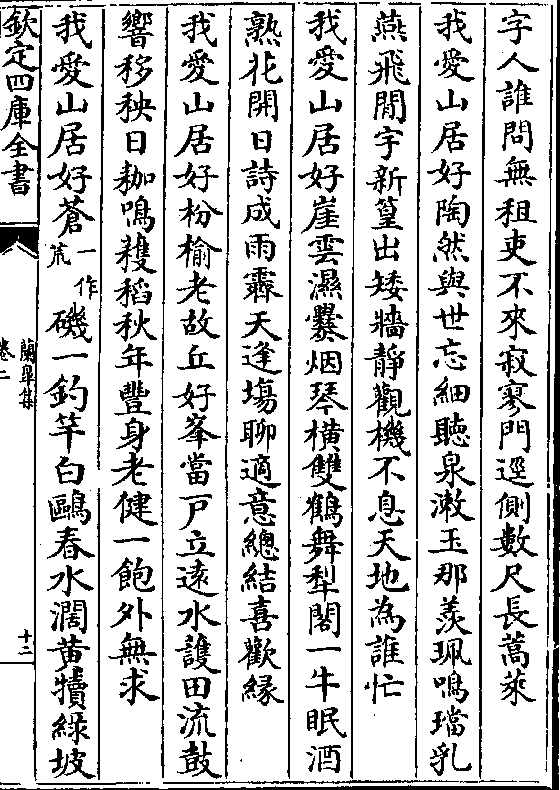 字人誰問無租吏不來寂寥門逕側數尺長蒿萊
我愛山居好陶然與世忘細聽泉漱玉那羨珮鳴璫乳
燕飛閒宇新篁出矮牆靜觀機不息天地為誰忙
我愛山居好崖雲濕爨烟琴橫雙鶴舞犁閣一牛眠酒
熟花開日詩成雨霽天逢塲聊適意總結喜歡緣
我愛山居好枌榆老故丘好峯當戶立遠水護田流鼓
響移秧日耞鳴穫稻秋年豐身老健一飽外無求
我愛山居好蒼一作荒磯一釣竿白鷗春水濶黃犢綠坡
欽定四庫全書
蘭臯集
卷二
十二